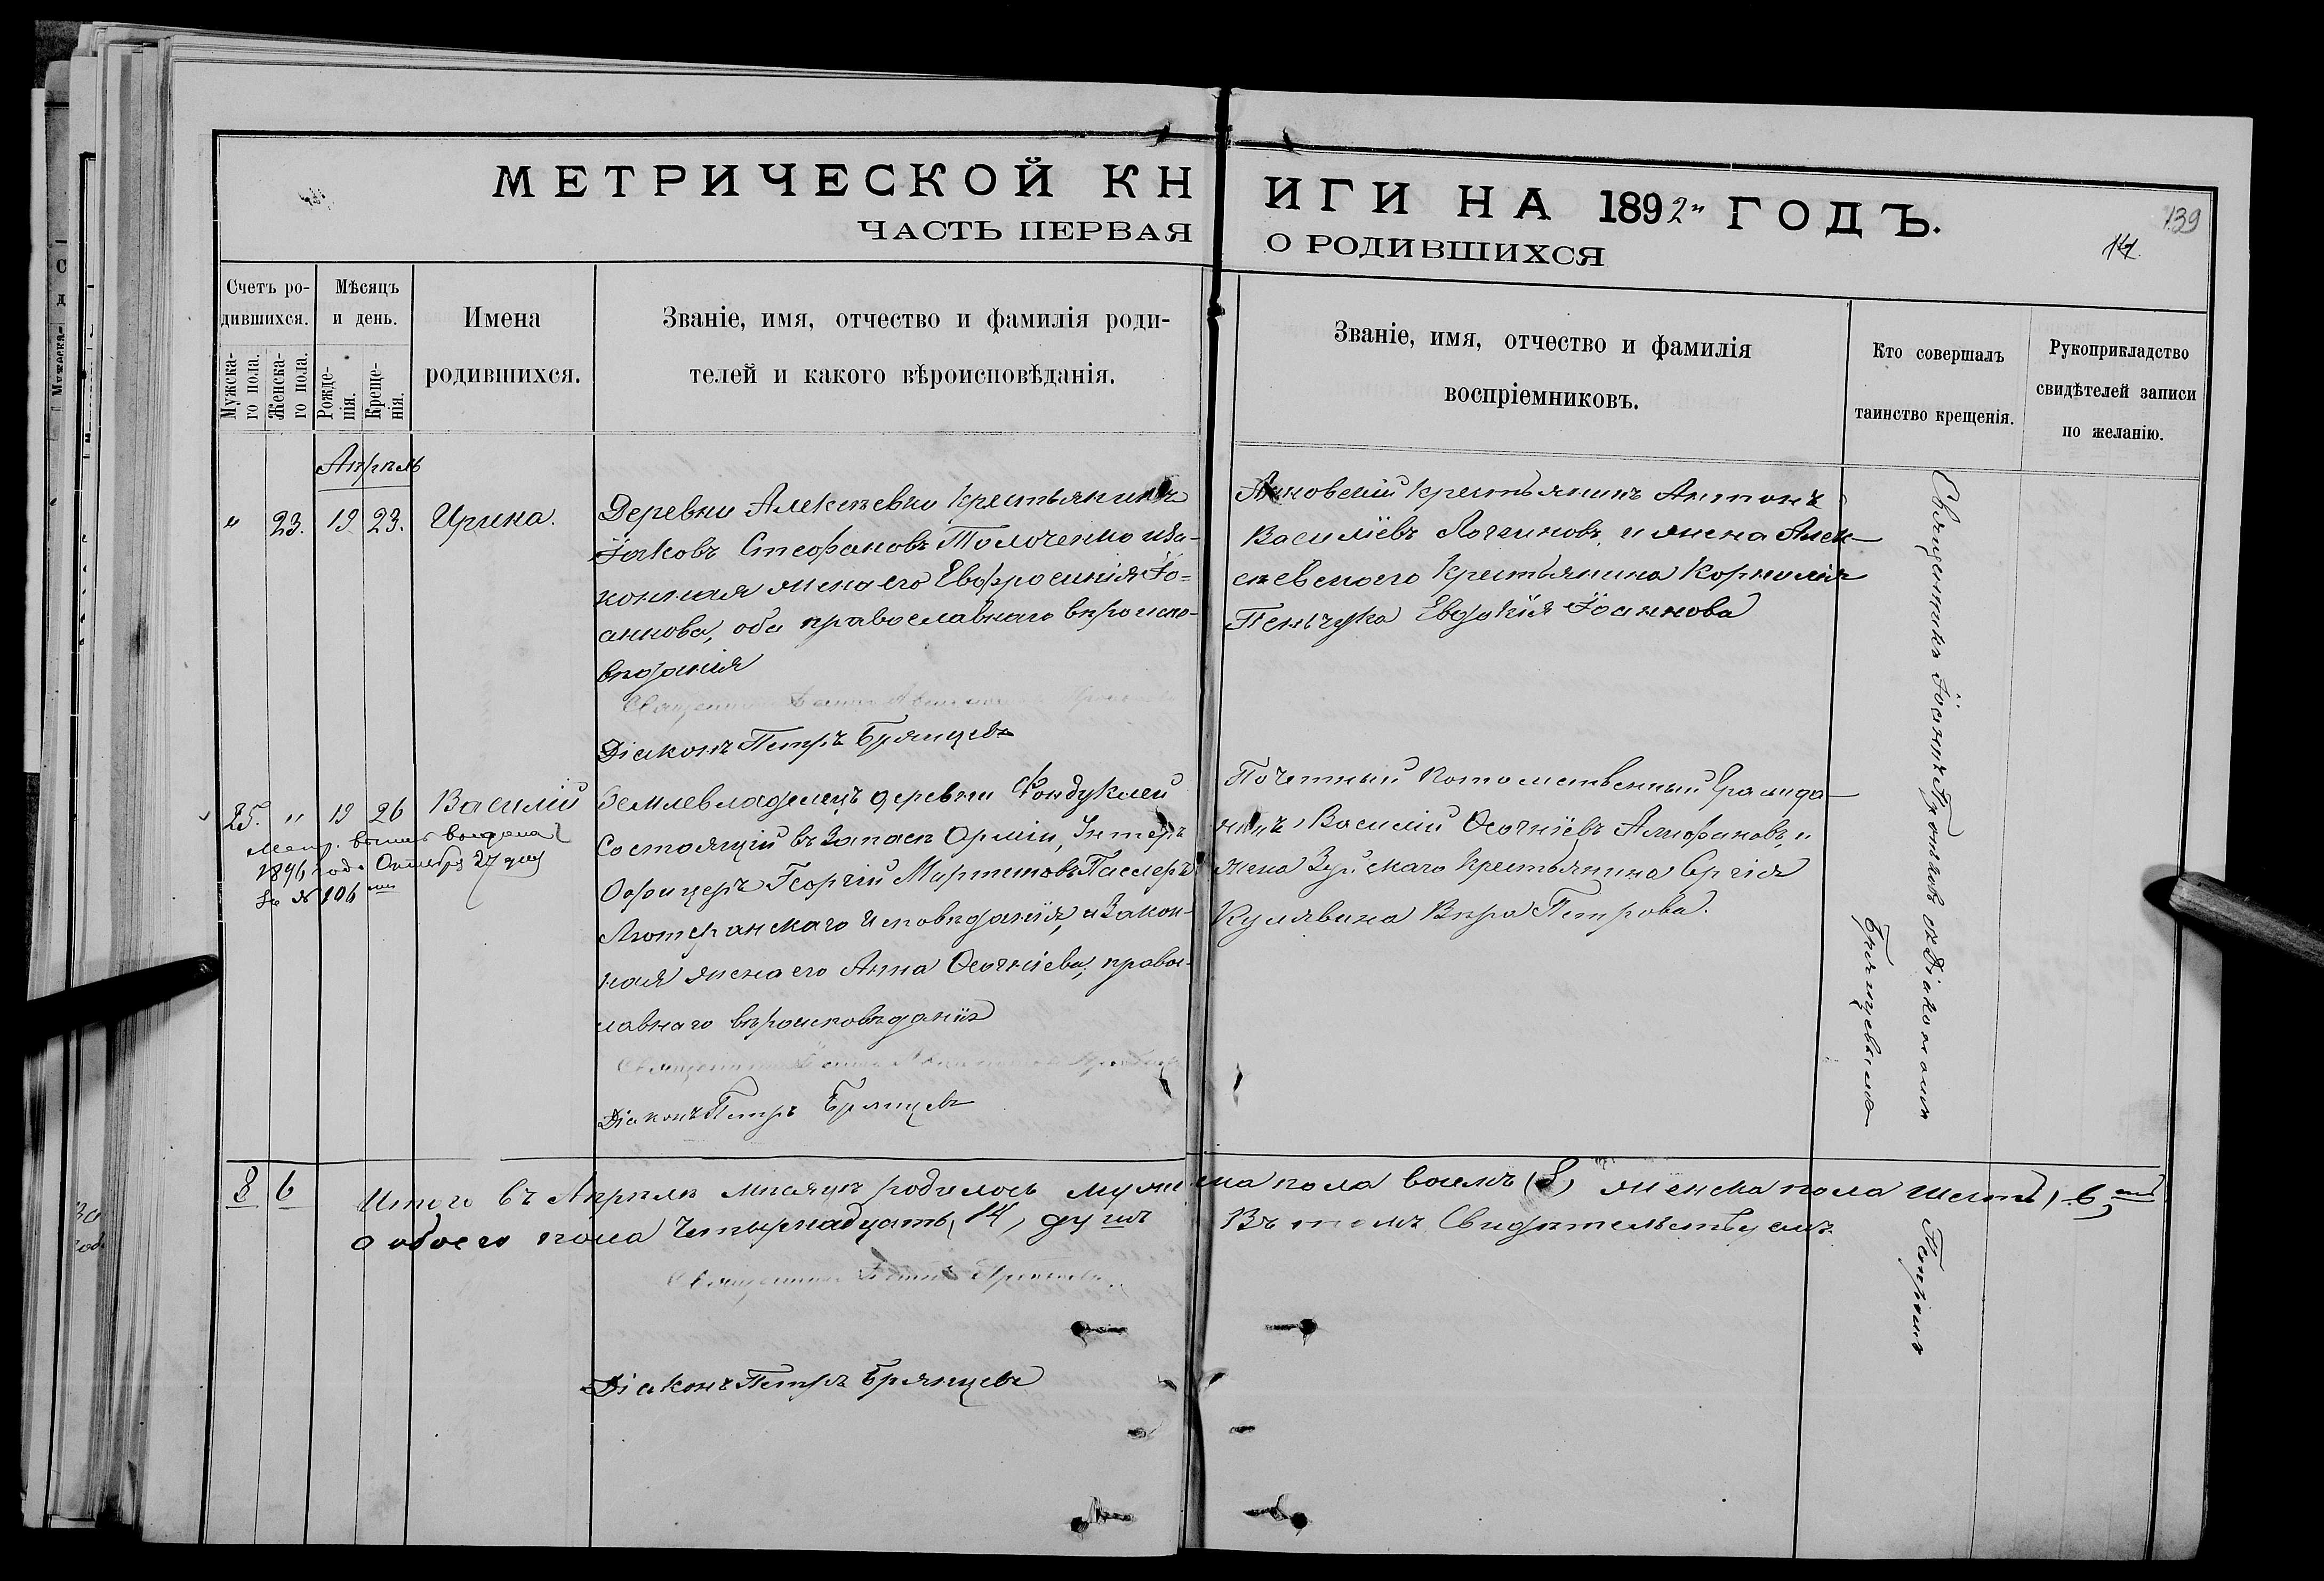 МЕТРИЧЕСКОЙ КНИГИ НА 1892й ГОДЪ.
139
14
ЧАСТЬ ПЕРВАЯ О РОДИВШИХСЯ
Счетъ ро-
дившихся.
Мужска-
го пола.
Женска-
го пола.
Мѣсяцъ
и день.
Рожде-
нія.
Креще-
нія.
Имена
родившихся.
Званіе, имя, отчество и фамилія роди-
телей и какого вѣроисповѣданія.
Званіе, имя, отчество и фамилія
воспріемниковъ.
Кто совершалъ
таинство крещенія.
Рукоприкладство
свидѣтелей записи
по желанію.
Апрѣль
" 23. 19 23. Ирина.
Деревни Алексѣевки крестьянинъ
Іаковъ Стефановъ Толоченко и за-
конная жена его Евфросинія Іо-
аннова, оба православнаго вѣроиспо-
вѣданія
Священникъ
Діаконъ Петръ Брянцевъ
крестьянинъ Антонъ
Василіевъ Логвиновъ, и жена Алек-
сѣевскаго крестьянина Корнилія
Евдокія Іоаннова
25. " 19 26 Василій
Метр. выпись выдана
1896 года Октября 27 дня
за № 106
Землевладелецъ деревни Фондуклей
Состоящій въ Запасѣ Арміи, Унтеръ
Офицеръ Георгій Мартиновъ Пасслеръ
Лютеранскаго исповѣданія, и Закон-
ная жена его Анна Ѳеогніева, правос-
лавнаго вѣроисповѣданія
Священникъ
Діаконъ Петръ Брянцевъ
Почетный Потомственный Гражда-
нинъ, Василій Ѳеогніевъ Алифановъ, и
жена Зуйскаго крестьянина Сергія
Кулявина Вѣра Петрова.
Священникъ Іоаннъ съ Діакономъ Петромъ
Брянцевымъ
8 6 Итого въ Апрѣлѣ мѣсяцѣ родилось мужеска пола восемь (8) женска пола шесть, 6
а обоего пола четырнадцать, 14, душъ Въ томъ Свидѣтельствуемъ
Священникъ Іоаннъ
Діаконъ Петръ Брянцевъ